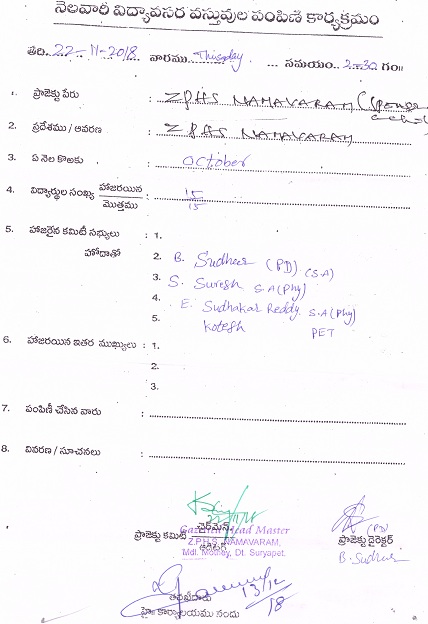 నెలవారీ విద్యావసర వస్తువుల పంపిణీ కార్యక్రమం
తేది. 22-11-2018 వారము Thisday ... సమయం. 2-30 గం॥
1. ప్రాజెక్టు పేరు : ZPHS NAMAVARAM (Sponser
2. ప్రదేశము / ఆవరణ : ZPHS NAMAVARAM
3. ఏ నెల కొఱకు : October
4. విద్యార్థుల సంఖ్య హాజరయిన : 15
మొత్తము 15
5. హాజరైన కమిటీ సభ్యులు : 1.
హోదాతో 2. B. Sudheer (PD) (S.A)
3. S. Suresh S.A(Phy)
4. E. Sudhakar Reddy S.A(Phy)
5. Kotesh PET
6. హాజరయిన ఇతర ముఖ్యులు : 1.
2.
3.
7. పంపిణీ చేసిన వారు :
8. వివరణ / సూచనలు :
ప్రాజెక్టు కమిటీ చైర్మన్
Gazetted Head Master
Z.P.H.S. NAMAVARAM,
Mdl. Mothey, Dt. Suryapet.
(PD)
ప్రాజెక్టు డైరెక్టర్
B. Sudheer
13/12/18
హై కార్యాలయము నందు